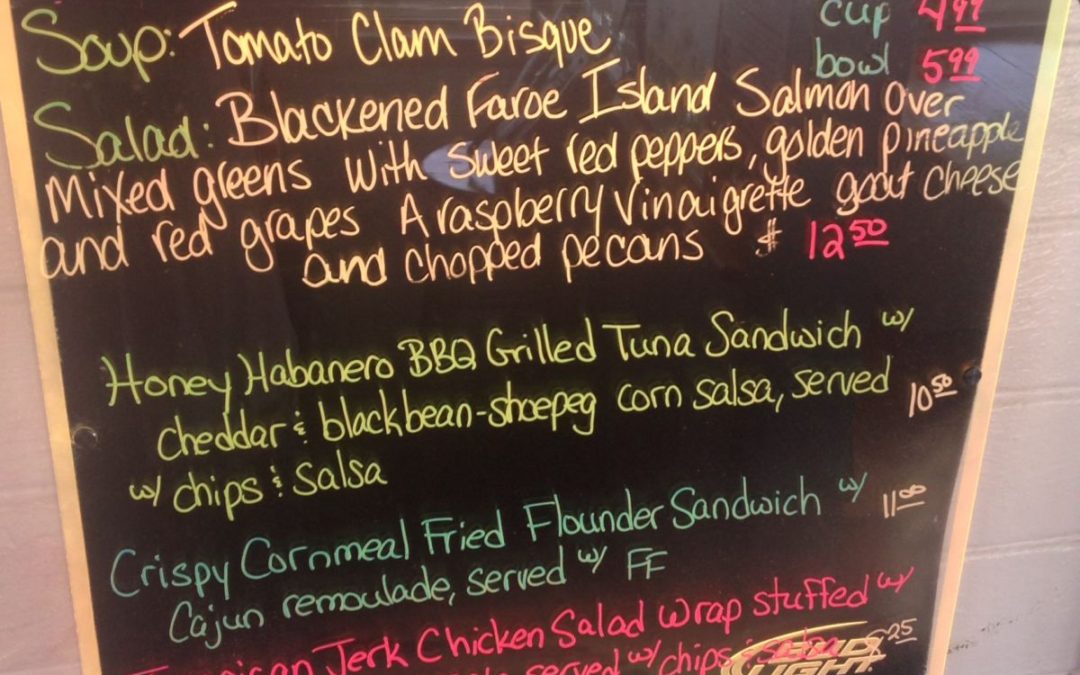 Soup: Tomato Clam Bisque
cup 4.99
bowl 5.99
Salad: Blackened Faroe Island Salmon over
Mixed greens with sweet red peppers, golden pineapple
and red grapes A raspberry vinaigrette goat cheese
and chopped pecans $ 12.50
Honey Habanero BBQ Grilled Tuna Sandwich w/
cheddar & blackbean-shoepeg corn salsa, served 10.50
w/ chips & salsa
Crispy Cornmeal Fried Flounder Sandwich w/ 11.00
Cajun remoulade, served w/ FF
Jerk Chicken Salad wrap stuffed w/
served w/ chips & salsa
LIGHT